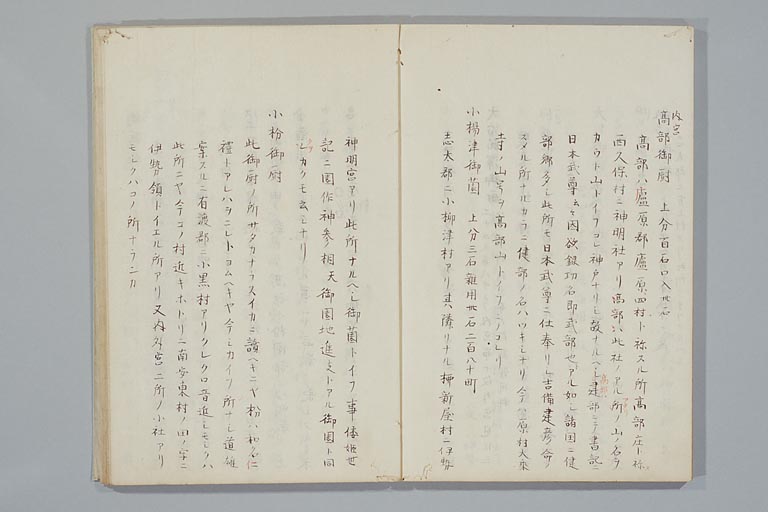 内宮
高部御厨 上分百石口入卅石
高部ハ廬原郡廬原四村ト称スル所高部庄ト称
西久保村ニ神明社アリ高部ハ此社ノアル所ノ山ノ名ヲ
カウト山トイフコレ神戸ナリシ故ナルヘシ建部ミノ書記ニ
日本武尊云々因欲録功名即武部也アル如シ諸国ニ健
部郷多シ此所モ日本武尊ニ仕奉リシ吉備建彦命ノ
スメル所ナルカラニ健部ノ名ハツキシナリ今原村大乗
寺ノ山号ヲ高部山トイフニノコレリ
小楊津御薗 上分三石雑用卅石二百八十町
志太郡ニ小柳津村アリ其隣リナル柳新屋村ニ伊勢
神明宮アリ此所ナルヘシ御薗トイフ事倭姫世
記ニ園作神参相天御園地進支トアル御園ト同
シカクモ云シナリ
小枌御厨
此御厨ノ所サタカナラスイカニ讀ヘキニヤ枌ハ和名仁
禮トアレハヲニレトヨムヘキヤ今シカイフ所ナシ道雄
案スルニ有渡郡ニ小黒村アリクレクロ音近シモシクハ
此所ニヤ今コノ村近キホトリニ南安東村ノ田ノ字ニ
伊勢領トイエル所アリ又内外宮二所ノ小社アリ
モシクハコノ所ナランカ